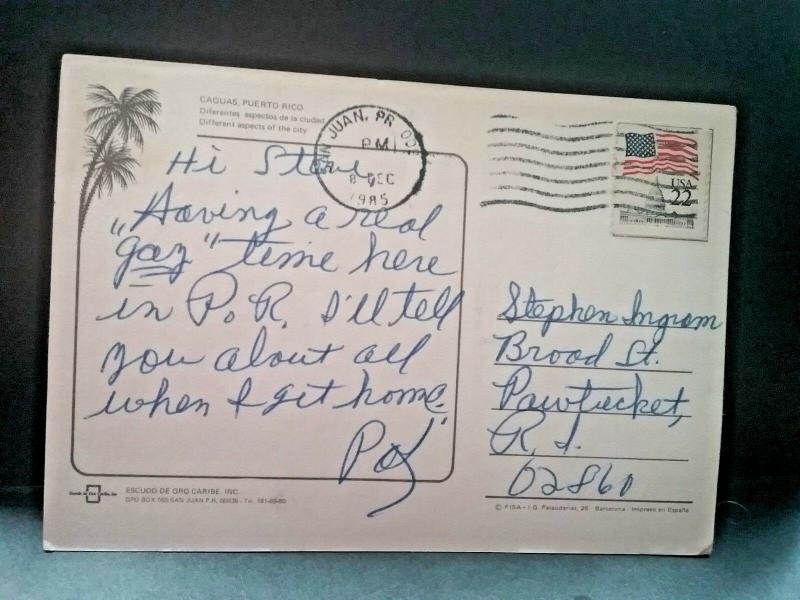 CAGUAS, PUERTO RICO
Diferentes aspectos de la ciudad
Different aspects of the city
JUAN, PR 009
PM
8 DEC
1985
USA
22
Hi Steve,
"Having a real
gay" time here
in P.R. I'll tell
you about all
when I get home
Stephen Ingram
Broad St.
Pawtucket,
R.I.
02860
Escudo de Oro Caribe, Inc.
ESCUDO DE ORO CARIBE, INC.
GPO BOX SAN JUAN P.R. 00936 - Tel.
© FISA - I.G. Palaudarias, 26 - Barcelona - Impreso en España